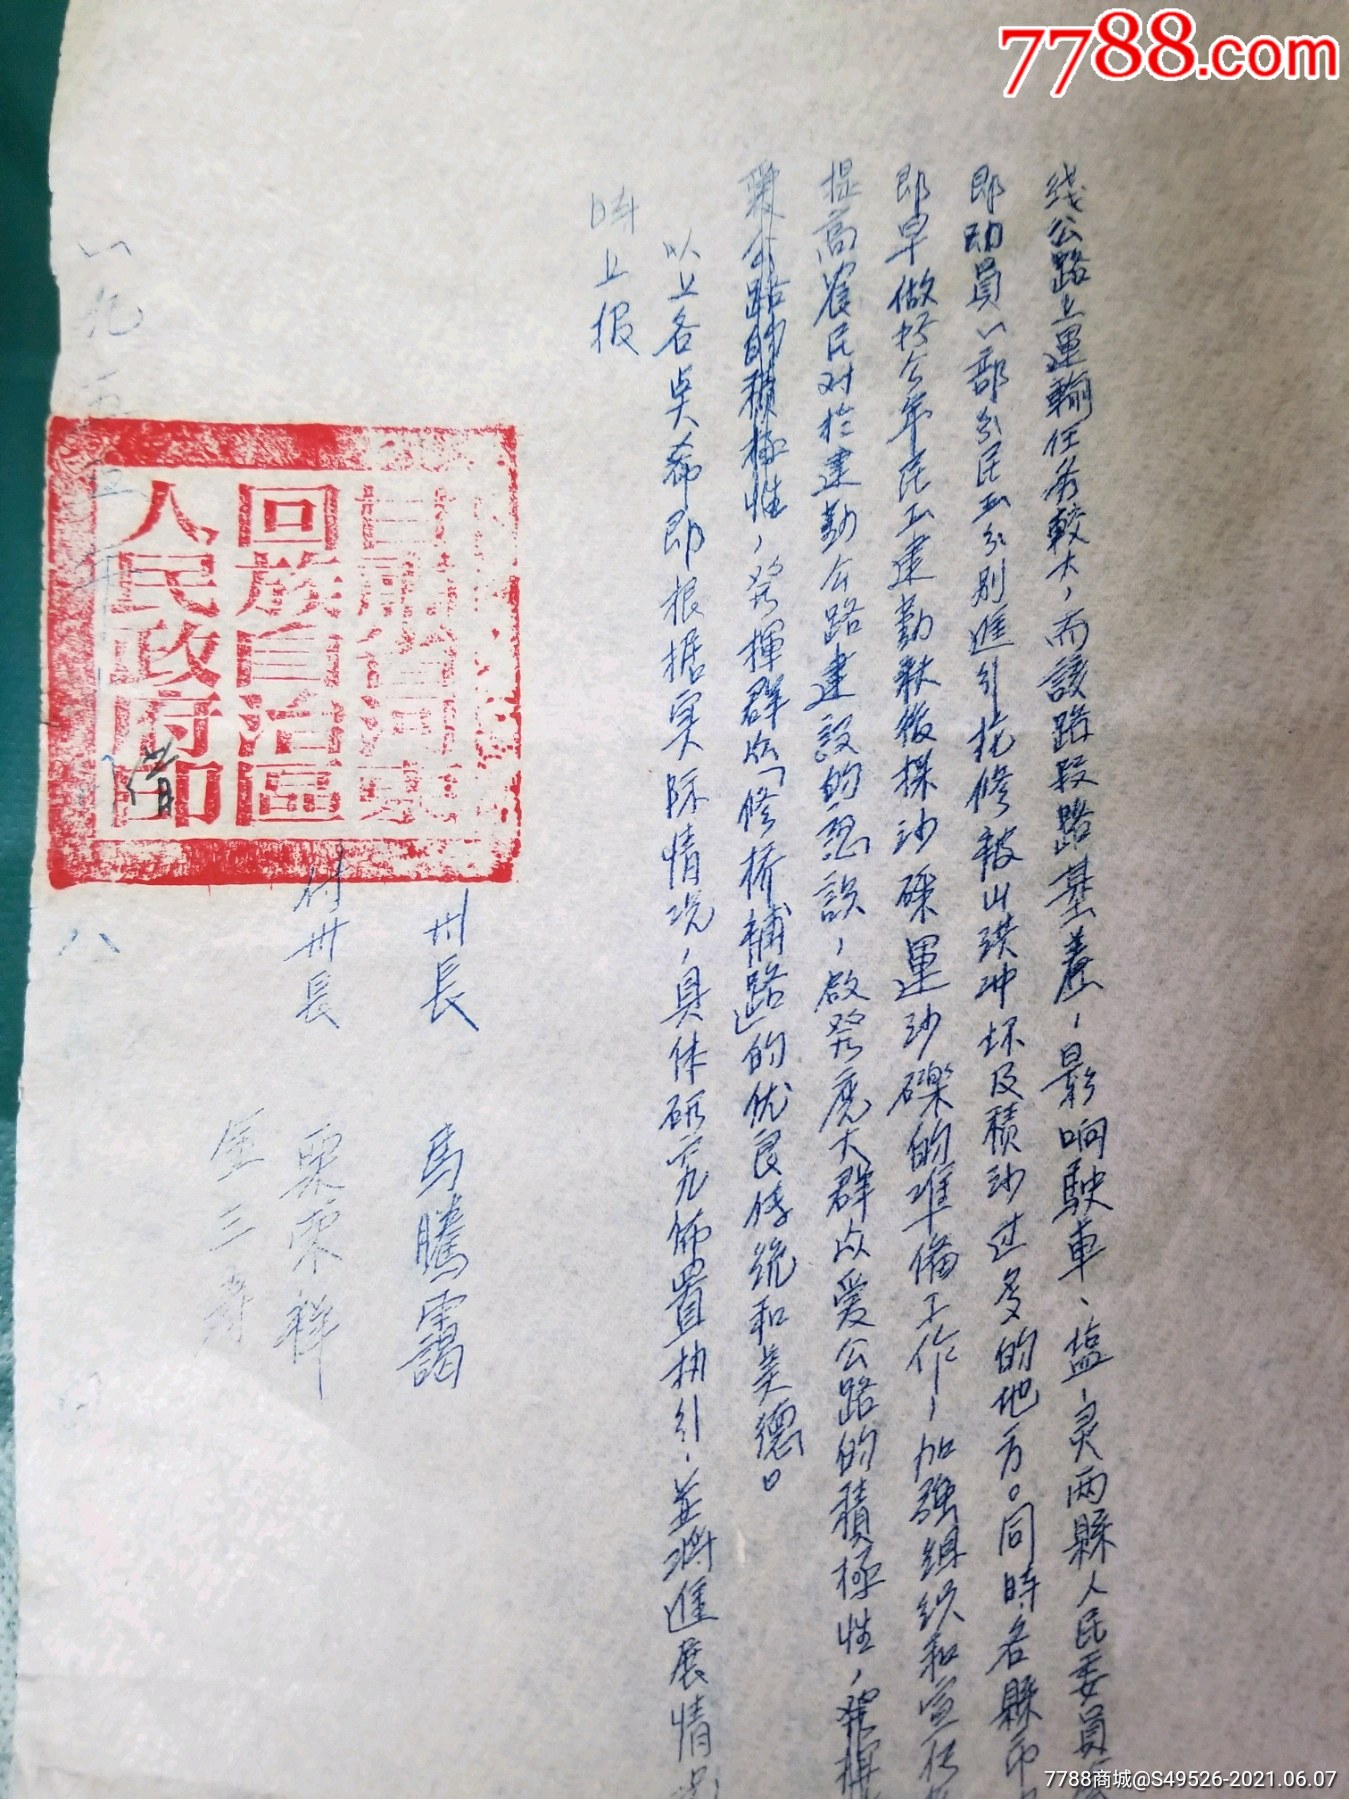 7788.com
线公路上運輸任务較大，而該路段路基差，影响駛車、盐、灵两縣人民委員
即动員一部分民工分别進行抢修被山洪冲坏及積沙过多的地方。同時各縣市
即早做好今年民工建勤秋後採沙砾運沙礫的準備工作，加強組织和宣传
提高農民对於建勤公路建設的認識，啟發廣大群众爱公路的積極性，發揮
公路的積極性，發揮群众「修桥補路」的优良传统和美德。
以上各点希即根据实际情况，具体研究佈置执行，並将進展情况
時上报
州長 馬騰靄
付州長 栗宋祥
金三寿
一九五五年
八
甘肅省河東
回族自治區
人民政府印
7788商城@S49526-2021.06.07